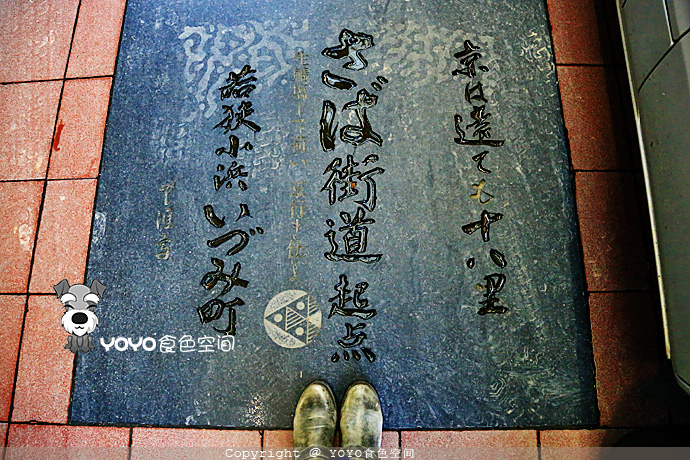 京は遠ても十八里
さば街道起点
生鯖塩して荷い 京行き仕る
若狭小浜いづみ町
YOYO食色空间
Copyright @ YOYO食色空间